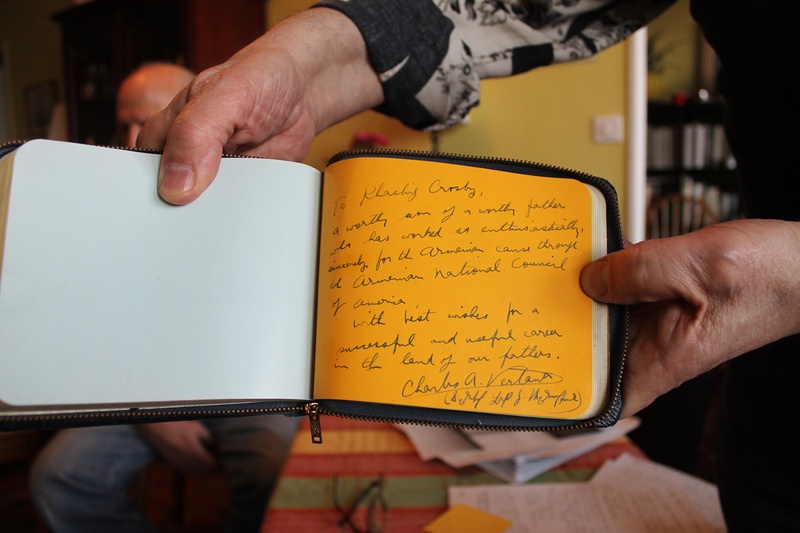 To Crosby,
a worthy son of a worthy father
who has worked so enthusiastically,
sincerely for th Armenian cause through
th Armenian National Council
of America.
with best wishes for a
successful and useful career
in th land of our fathers.
Charles A.